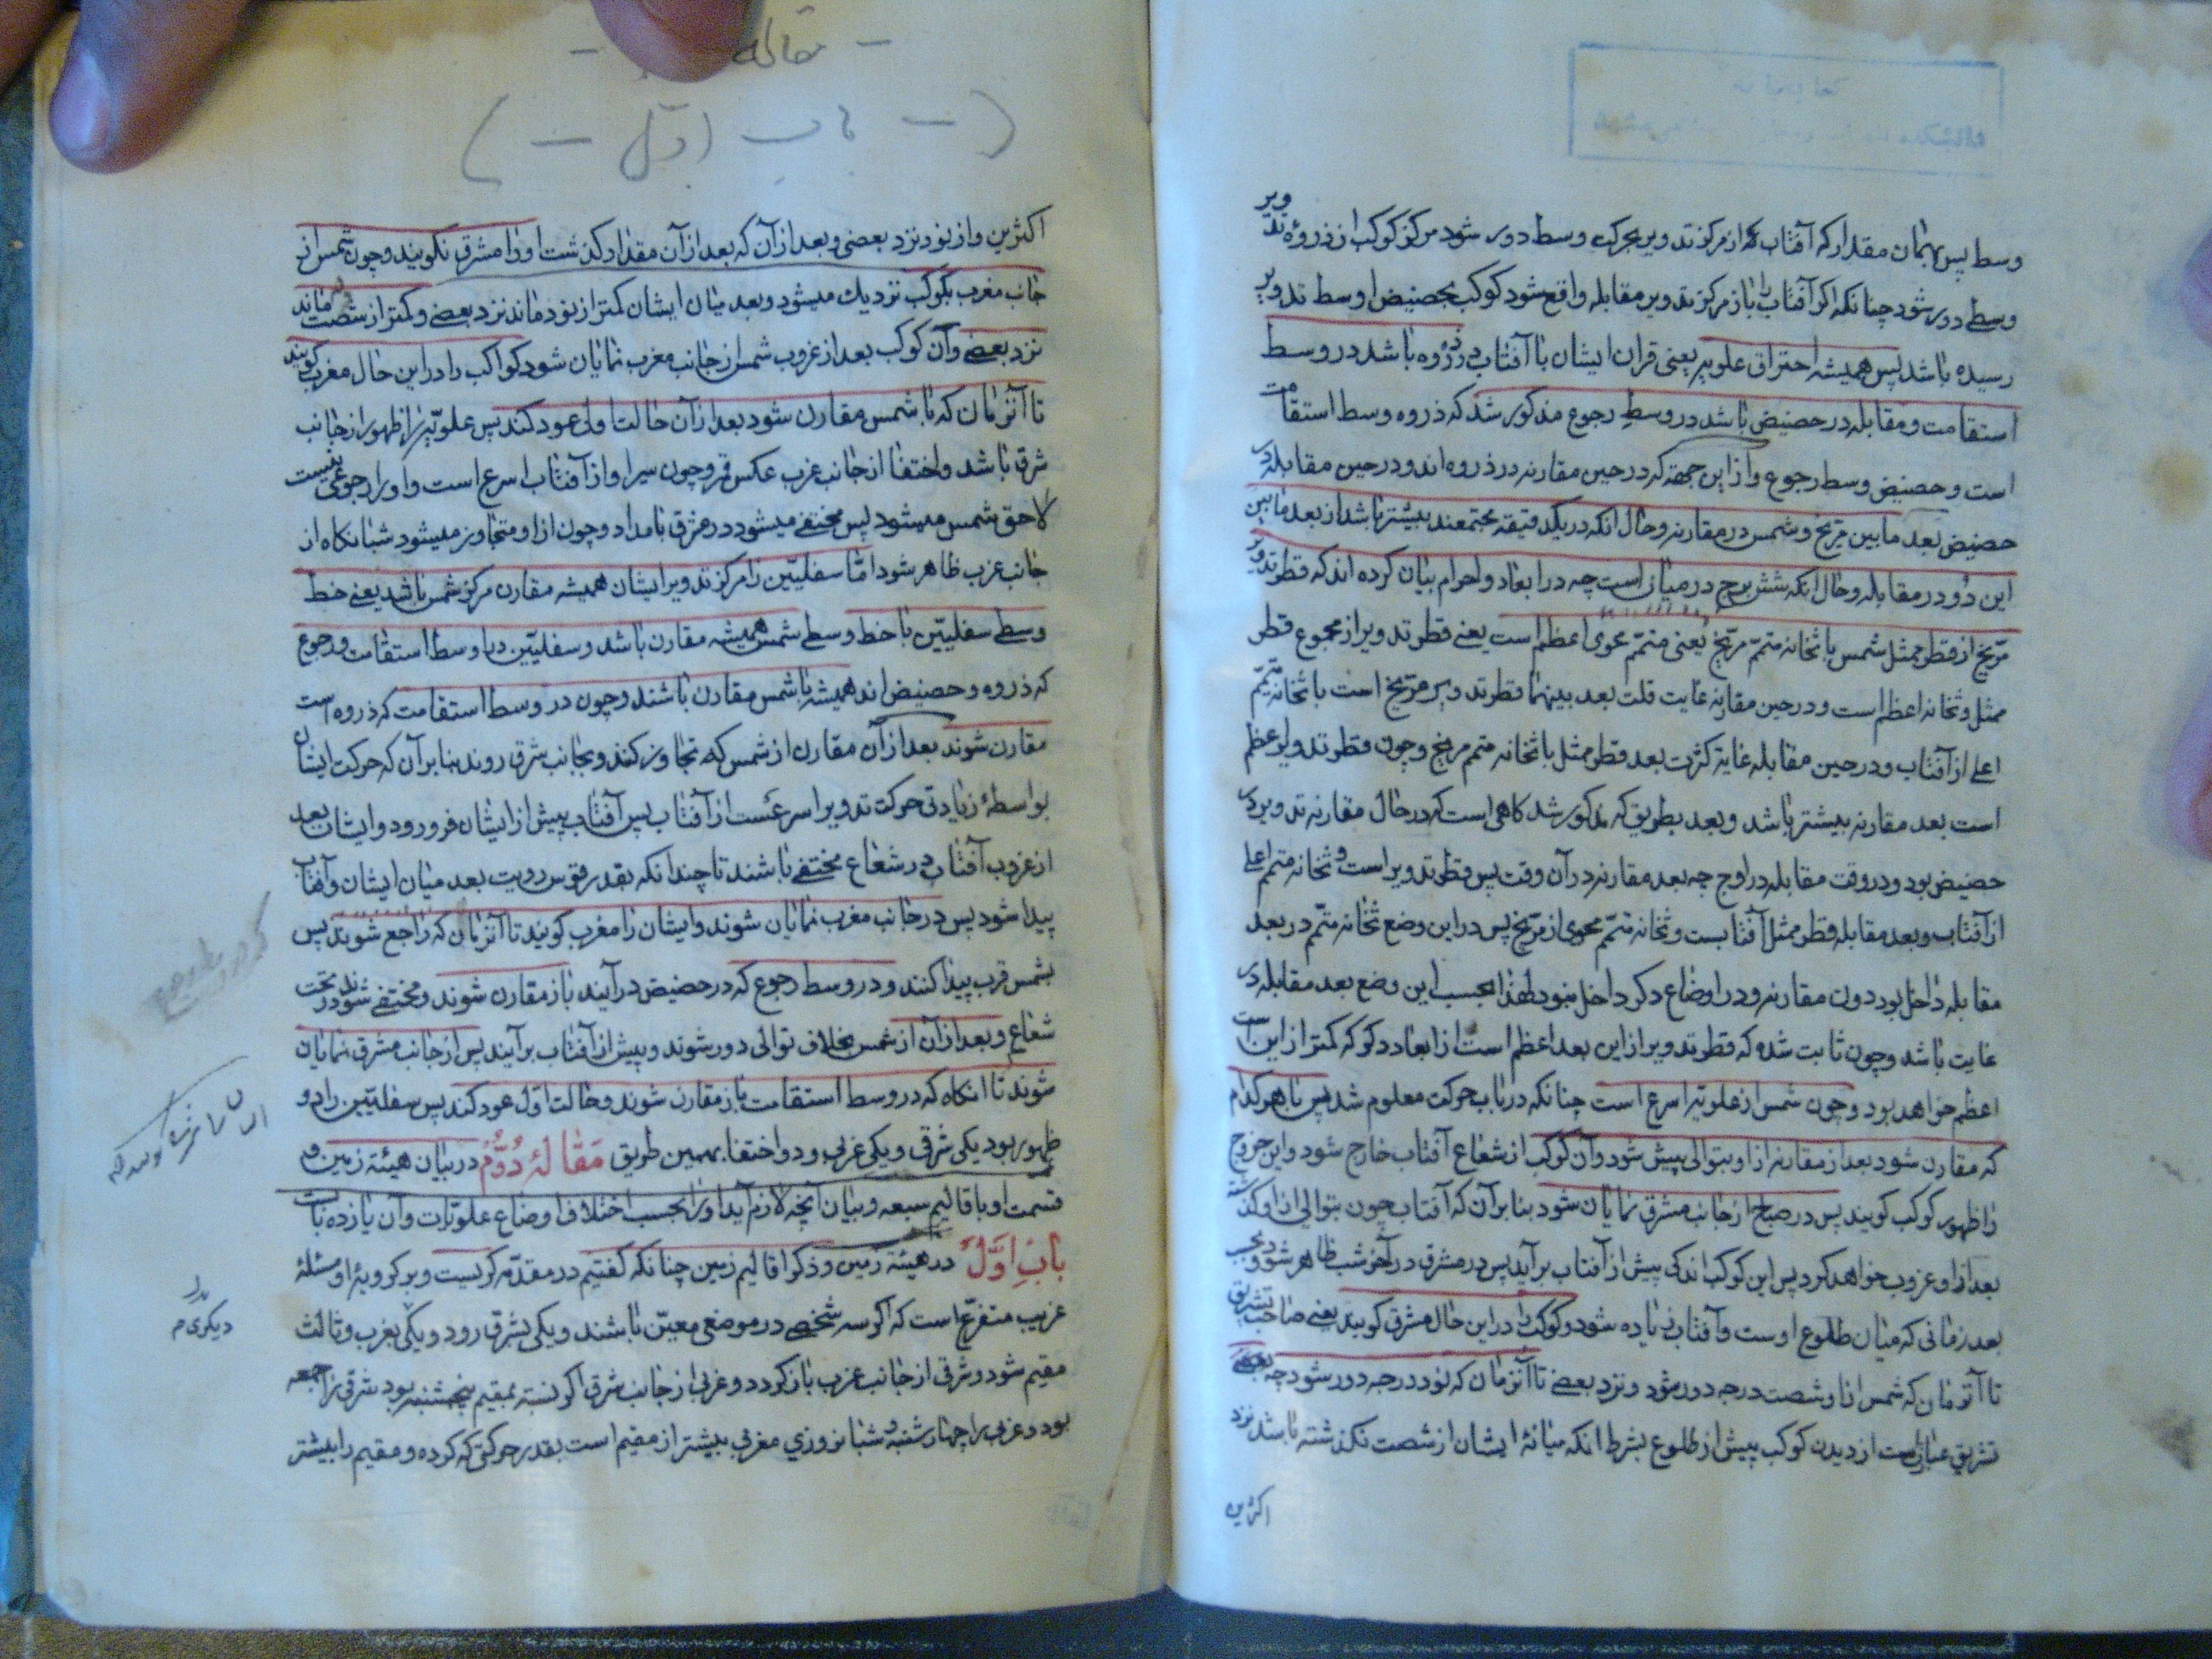 وسط پس بهمان مقدار که آفتاب از مرکز تدویر بحرکت وسط دور شود مرکز کوکب از ذروهٔ تدویر
وسطی دور شود چنانکه اکر آفتاب را باز مرکز تدویر مقابله واقع شود کوکب بحضیض اوسط تدویر
رسیده باشد پس همیشه احتراق علویه یعنی قران ایشان با آفتاب در ذروه باشد در وسط
استقامت و مقابله در حضیض باشد در وسط رجوع مذکور شد که ذروه وسط استقامت
است و حضیض وسط رجوع و از این جهة که در حین مقارنه در ذروه اند و در حین مقابله در
حضیض بعد مابین مریخ و شمس در مقارنه و حال انکه در یک دقیقه مجتمعند بیشتر باشد از بعد مابین
این دو در مقابله و حال انکه شش برج در میان است چه در ابعاد و اجرام بیان کرده اند که قطر تدویر
مریخ از قطر ممثل شمس با ثخانه متمم مریخ یعنی متمم محوی اعظم است یعنی قطر تدویر از مجموع قطر
ممثل و ثخانه اعظم است و در حین مقارنه غایت قلت بعد بینهما قطر تدویر مریخ است با ثخانه متمم
اعلی از آفتاب و در حین مقابله غایة کثرت بعد قطر ممثل با ثخانه متمم مریخ و چون قطر تدویر اعظم
است بعد مقارنه بیشتر باشد و بعد بطریق که مذکور شد کاهی است که در حال مقارنه تدویر در
حضیض بود و در وقت مقابله در اوج چه بعد مقارنه در آن وقت پس قطر تدویر است و ثخانه متمم اعلی
از آفتاب و بعد مقابله قطر ممثل آفتابست و ثخانه متمم محوی از مریخ پس در این وضع ثخانه متمم در بعد
مقابله داخل بود دون مقارنه و در اوضاع دکر داخل نبود لهذا بحسب این وضع بعد مقابله در
غایت باشد و چون ثابت شده که قطر تدویر از این بعد اعظم است از ابعاد دکر که کمتر از این است
اعظم خواهد بود و چون شمس از علویه اسرع است چنانکه در باب حرکت معلوم شد پس با هر کدام
که مقارن شود بعد از مقارنه از او بتوالی پیش شود و آن کوکب از شعاع آفتاب خارج شود و این خروج
را ظهور کوکب کویند پس در صباح از جانب مشرق نمایان شود بنا بر آن که آفتاب چون بتوالی از او کذشته
بعد از او غروب خواهد کرد پس این کوکب اندکی پیش از آفتاب برآید پس در مشرق در آخر شب ظاهر شود و بحسب
بعد زمانی که میان طلوع اوست و آفتاب زیاده شود و کوکب را در این حال مشرق کویند یعنی صاحب تشریق
تا آنزمان که شمس از او شصت درجه دور شود و نزد بعضی تا آنزمان که نود درجه دور شود چه بعضی
تشریق عبارتست از دیدن کوکب پیش از طلوع بشرط انکه میانهٔ ایشان از شصت نکذشته باشد نزد
اکثرین
مقاله
(– باب اول –)
اکثرین و از نود نزد بعضی و بعد از آن که بعد از آن مقدار کذشت او را مشرق نکویند و چون شمس از
جانب مغرب بکوکب نزدیك میشود و بعد میان ایشان کمتر از نود ماند نزد بعضی و کمتر از شصت ماند
نزد بعضی و آن کوکب بعد از غروب شمس از جانب مغرب نمایان شود کواکب را در این حال مغرب کویند
تا آنزمان که با شمس مقارن شود بعد از آن حالت اولی عود کند پس علویه را ظهور از جانب
شرق باشد و اختفا از جانب غرب عکس قمر و چون سیر او از آفتاب اسرع است و او را رجوعی نیست
لاحق شمس میشود پس مختفی میشود در مشرق بامداد و چون از او متجاوز میشود شبانکاه از
جانب غرب ظاهر شود اما سفلیین را مرکز تدویر ایشان همیشه مقارن مرکز شمس باشد یعنی خط
وسطی سفلیین با خط وسطی شمس همیشه مقارن باشد و سفلیین در اوسط استقامت و رجوع
که ذروه و حضیض اند همیشه با شمس مقارن باشند و چون در وسط استقامت که ذروه است
مقارن شوند بعد از آن مقارن از شمس که تجاوز کنند و بجانب شرق روند بنابر آن که حرکت ایشان
بواسطهٔ زیادتی حرکت تدویر اسرعست از آفتاب پس آفتاب پیش از ایشان فرو رود و ایشان بعد
از غروب آفتاب در شعاع مختفی باشند تا چندانکه بقدر قوس رویت بعد میان ایشان و آفتاب
پیدا شود پس در جانب مغرب نمایان شوند و ایشان را مغرب کویند تا آنزمان که راجع شوند پس
بشمس قرب پیدا کنند و در وسط رجوع که در حضیض درآیند باز مقارن شوند و مختفی شوند در تحت
شعاع و بعد از آن از شمس بخلاف توالی دور شوند و پیش از آفتاب برآیند پس از جانب مشرق نمایان
شوند تا انکاه که در وسط استقامت باز مقارن شوند و حالت اول عود کند پس سفلیین را دو
ظهور بود یکی شرقی و یکی غربی و دو اختفا بهمین طریق مقالهٔ دوم در بیان هیئة زمین و
قسمت او باقالیم سبعه و بیان آنچه لازم آید او را بحسب اختلاف اوضاع علویات و آن یازده بابست
باب اول در هیئة زمین و ذکر اقالیم زمین چنانکه کفتیم در مقدمه کریست و بر کرویهٔ او مسئلهٔ
غریب متفرع است که اکر سه شخص در موضعی معین باشند و یکی بشرق رود و یکی بغرب و ثالث
مقیم شود و شرقی از جانب غرب باز کردد و غربی از جانب شرق اکر نسبة بمقیم پنجشنبه بود شرقی را جمعه
بود و غربی را چهارشنبه و شبانروزی مغربی بیشتر از مقیم است بقدر حرکتی که کرده و مقیم را بیشتر